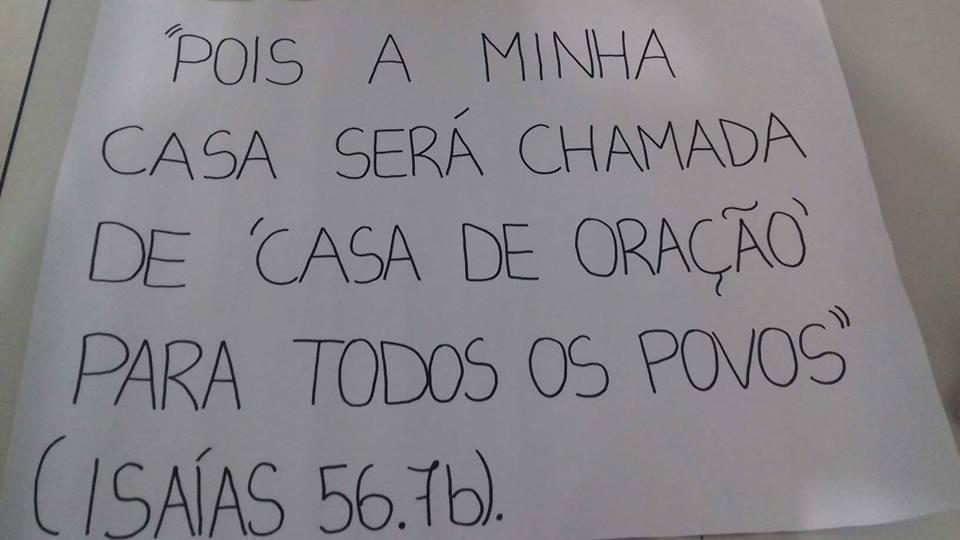 "POIS A MINHA
CASA SERÁ CHAMADA
DE 'CASA DE ORAÇÃO'
PARA TODOS OS POVOS"
(ISAÍAS 56.7b).